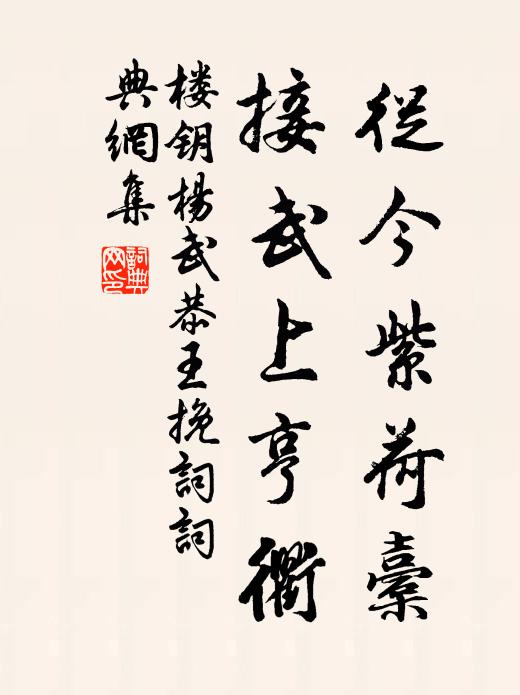 從今紫荷橐
接武上亨衢
楼钥杨武恭王挽詞詞
典網集
詞典网印